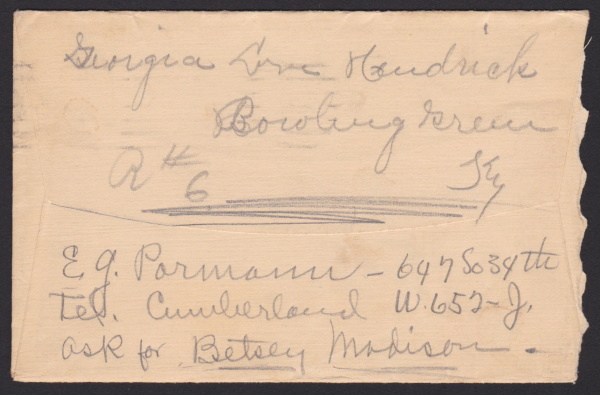 Georgia Love Hendrick
Bowling Green
R # 6 Ky
E. G. Pormann - 647 So 34th
Tel. Cumberland W. 652-J.
ask for Betsey Madison -